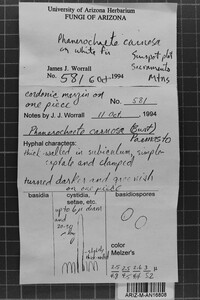 University of Arizona Herbarium
FUNGI OF ARIZONA
Phanerochaete carnosa
on white fir
Sunspot plot
Sacramento
Mtns
James J. Worrall
No. 581 6 Oct 1994
cordonic margin on
one piece
No. 581
Notes by J. J. Worrall 11 Oct 1994
Phanerochaete carnosa (Burt)
Parmasto
Hyphal characters:
thick-walled in subiculum, simple-
septate and clamped
turned darker and greenish
on one piece
basidia
cystidia,
setae, etc.
basidiospores
up to 6 µ diam
and
slightly
thick-walled
color
Melzer's
ARIZ-M-AN16808